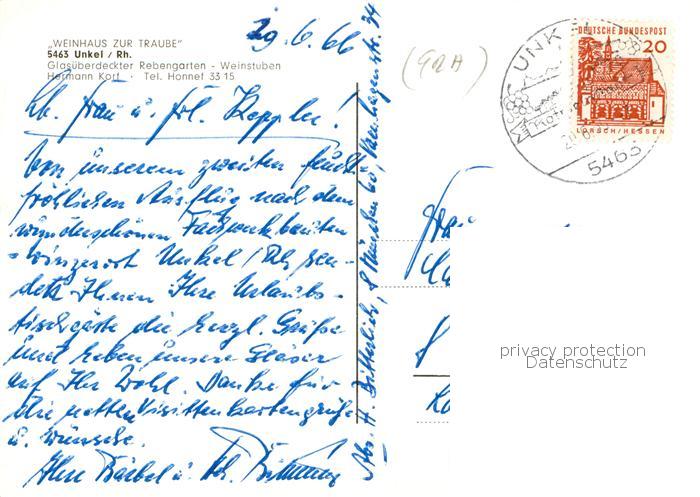 29.6.66
„WEINHAUS ZUR TRAUBE"
5463 Unkel / Rh.
Glasüberdeckter Rebengarten - Weinstuben
Hermann Korf · Tel. Honnef 33 15
(92A)
UNKEL
5463
DEUTSCHE BUNDESPOST
20
LORSCH/HESSEN
Lb. Frau u. Frl. Keppler!
Von unserem zweiten feucht
fröhlichen Ausflug nach dem
wunderschönen Fachwerkbauten
-winzerort Unkel / Rh. sen-
den Ihnen Ihre Urlaubs-
tischgäste die herzl. Grüße
und heben unsere Gläser
auf Ihr Wohl. Danke für
die netten Visittenkartengrüße
u. wünsche.
Ihre Bärbel u.
Abs. H. 8 München 60
Frau
8
privacy protection
Datenschutz